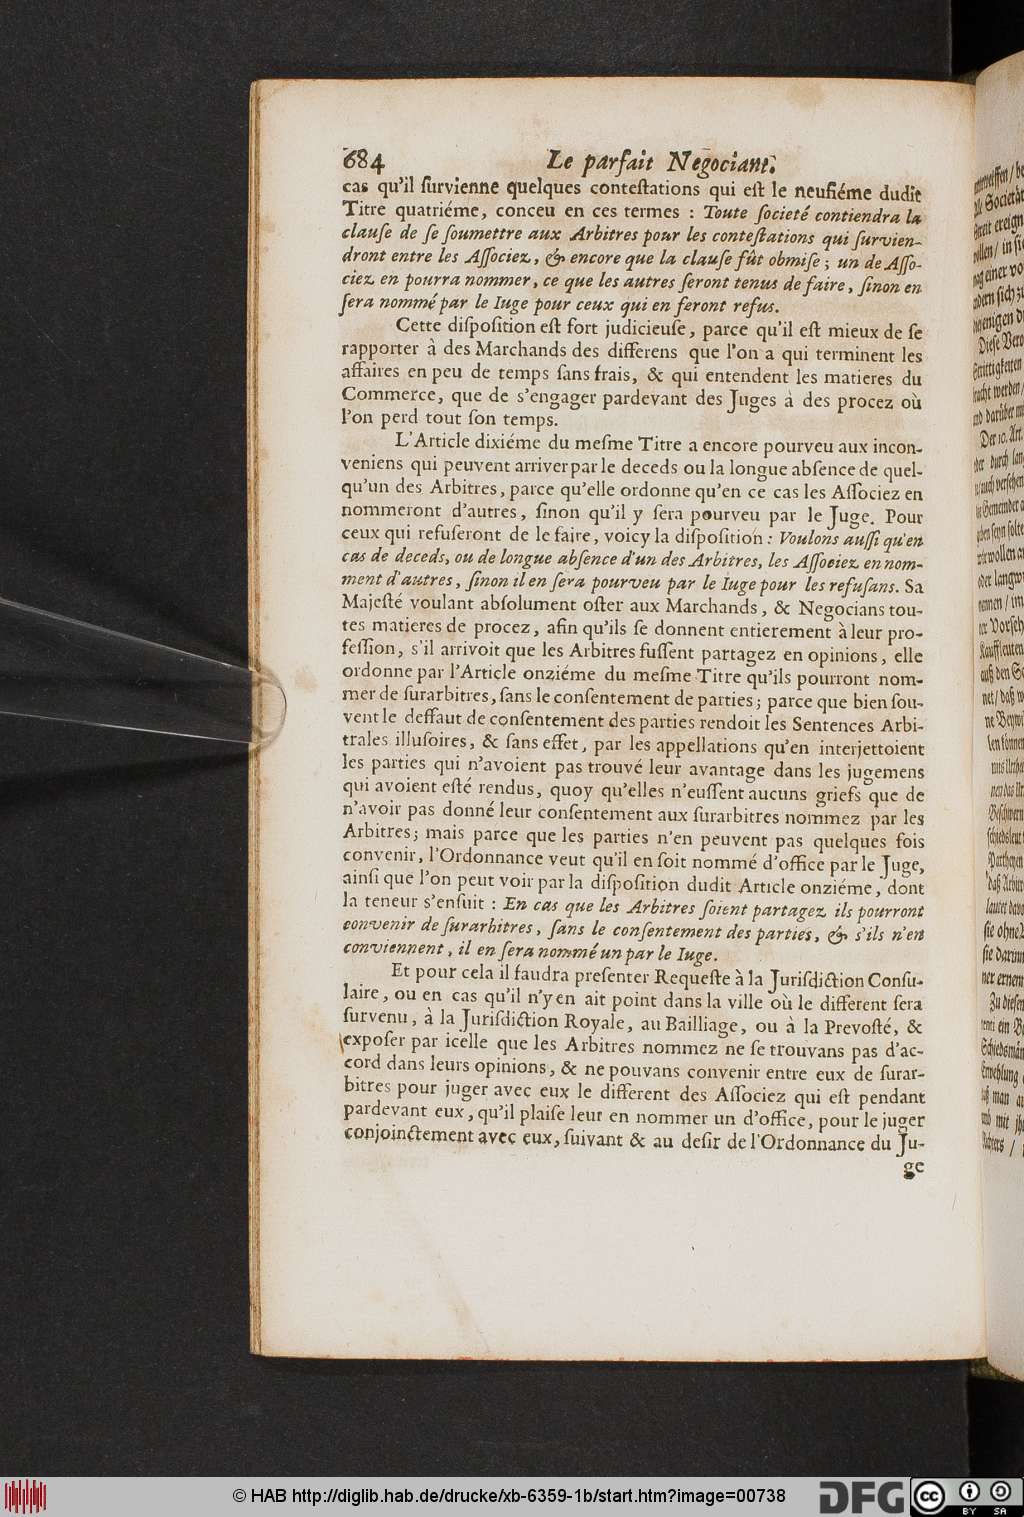 684 Le parfait Negociant.
cas qu'il ſurvienne quelques conteſtations qui eſt le neufiéme dudit
Titre quatriéme, conceu en ces termes : Toute ſocieté contiendra la
clauſe de ſe ſoumettre aux Arbitres pour les conteſtations qui ſurvien-
dront entre les Aſſociez, & encore que la clauſe fût obmiſe ; un de Aſſo-
ciez en pourra nommer, ce que les autres ſeront tenus de faire, ſinon en
ſera nommé par le Iuge pour ceux qui en feront refus.
Cette diſpoſition eſt fort judicieuſe, parce qu'il eſt mieux de ſe
rapporter à des Marchands des differens que l'on a qui terminent les
affaires en peu de temps ſans frais, & qui entendent les matieres du
Commerce, que de s'engager pardevant des Juges à des procez où
l'on perd tout ſon temps.
L'Article dixiéme du meſme Titre a encore pourveu aux incon-
veniens qui peuvent arriver par le deceds ou la longue abſence de quel-
qu'un des Arbitres, parce qu'elle ordonne qu'en ce cas les Aſſociez en
nommeront d'autres, ſinon qu'il y ſera pourveu par le Juge. Pour
ceux qui refuſeront de le faire, voicy la diſpoſition : Voulons auſſi qu'en
cas de deceds, ou de longue abſence d'un des Arbitres, les Aſſociez en nom-
ment d'autres, ſinon il en ſera pourveu par le Iuge pour les refuſans. Sa
Majeſté voulant abſolument oſter aux Marchands, & Negocians tou-
tes matieres de procez, afin qu'ils ſe donnent entierement à leur pro-
feſſion, s'il arrivoit que les Arbitres fuſſent partagez en opinions, elle
ordonne par l'Article onziéme du meſme Titre qu'ils pourront nom-
mer de ſurarbitres, ſans le conſentement de parties ; parce que bien ſou-
vent le deffaut de conſentement des parties rendoit les Sentences Arbi-
trales illuſoires, & ſans effet, par les appellations qu'en interjettoient
les parties qui n'avoient pas trouvé leur avantage dans les jugemens
qui avoient eſté rendus, quoy qu'elles n'euſſent aucuns griefs que de
n'avoir pas donné leur conſentement aux ſurarbitres nommez par les
Arbitres; mais parce que les parties n'en peuvent pas quelques fois
convenir, l'Ordonnance veut qu'il en ſoit nommé d'office par le Juge,
ainſi que l'on peut voir par la diſpoſition dudit Article onziéme, dont
la teneur s'enſuit : En cas que les Arbitres ſoient partagez ils pourront
convenir de ſurarbitres, ſans le conſentement des parties, & s'ils n'en
conviennent, il en ſera nommé un par le Iuge.
Et pour cela il faudra preſenter Requeſte à la Juriſdiction Conſu-
laire, ou en cas qu'il n'y en ait point dans la ville où le different ſera
ſurvenu, à la Juriſdiction Royale, au Bailliage, ou à la Prevoſté, &
expoſer par icelle que les Arbitres nommez ne ſe trouvans pas d'ac-
cord dans leurs opinions, & ne pouvans convenir entre eux de ſurar-
bitres pour juger avec eux le different des Aſſociez qui eſt pendant
pardevant eux, qu'il plaiſe leur en nommer un d'office, pour le juger
conjoinctement avec eux, ſuivant & au deſir de l'Ordonnance du Ju-
ge
© HAB http://diglib.hab.de/drucke/xb-6359-1b/start.htm?image=00738
DFG
cc BY SA